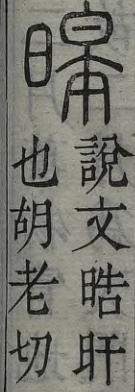 暤
說文晧旰
也胡老切